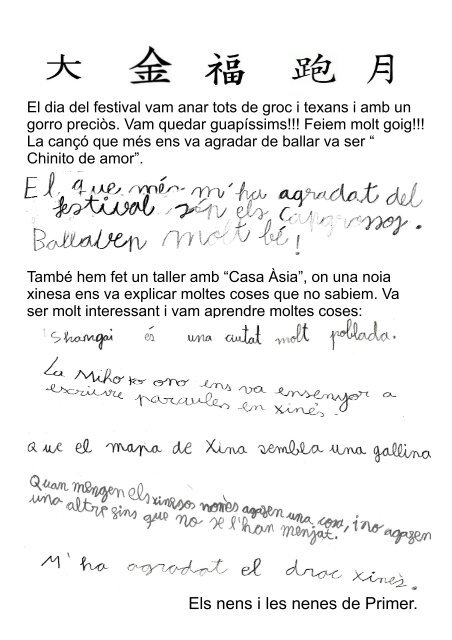 大 金 福 跑 月
El dia del festival vam anar tots de groc i texans i amb un
gorro preciòs. Vam quedar guapíssims!!! Feiem molt goig!!!
La cançó que més ens va agradar de ballar va ser “
Chinito de amor”.
El que més m'ha agradat del
festival són els Capgrassos.
Ballaven molt bé!
També hem fet un taller amb “Casa Àsia”, on una noia
xinesa ens va explicar moltes coses que no sabiem. Va
ser molt interessant i vam aprendre moltes coses:
Shangai és una ciutat molt poblada.
La Mihoko ens va ensenyar a
escriure paraules en xinès.
que el mapa de Xina sembla una gallina
Quan mengen els xinesos només agafen una cosa, i no agafen
una altre fins que no se l'han menjat.
M'ha agradat el drac xinès.
Els nens i les nenes de Primer.